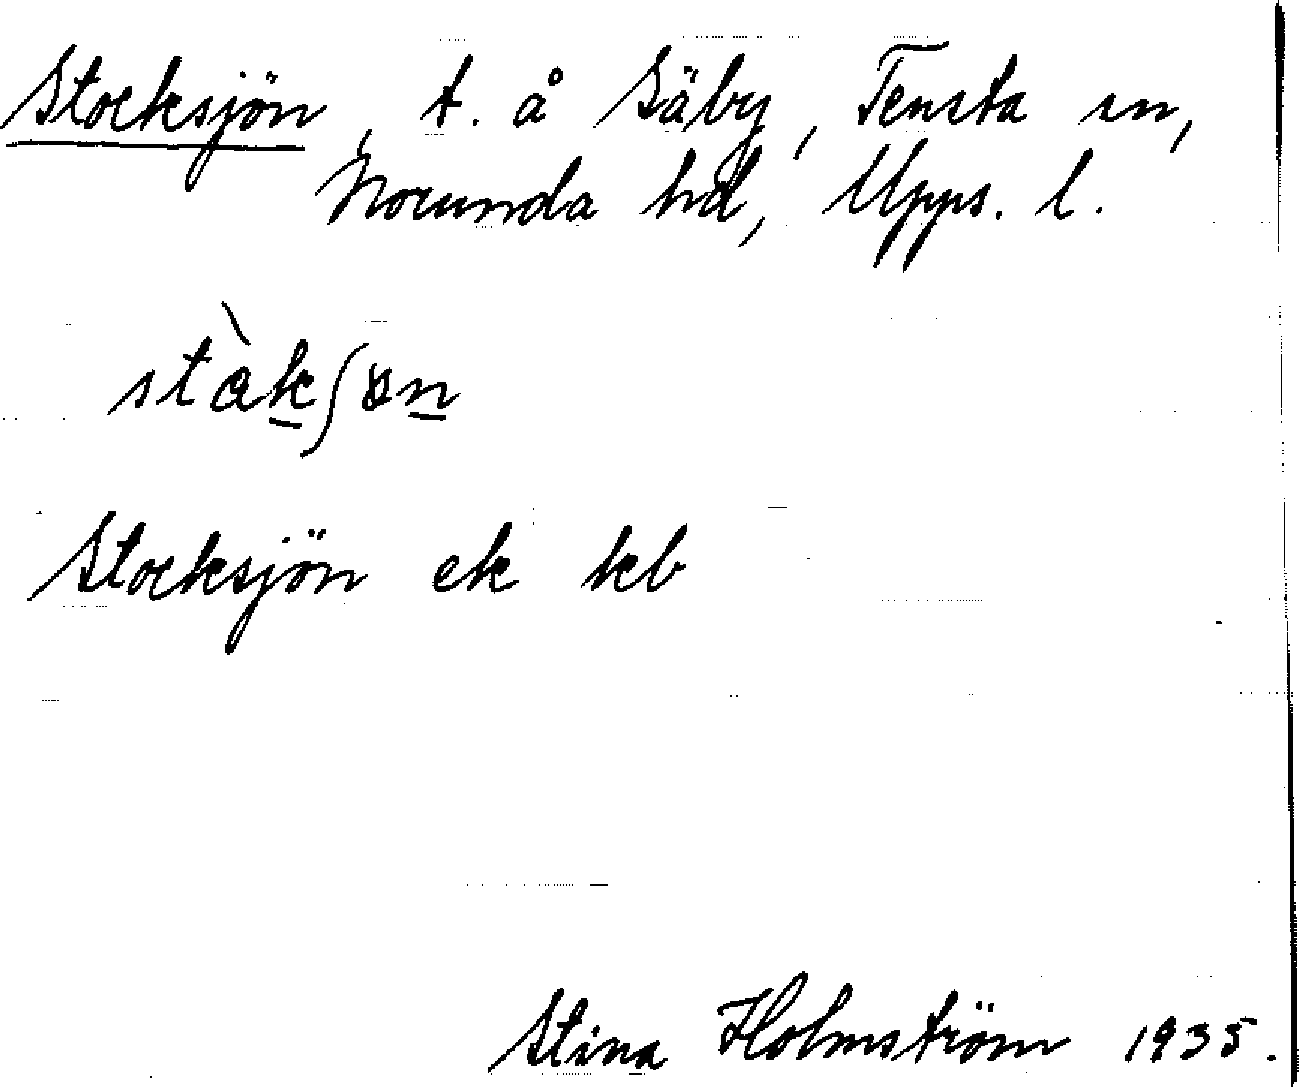 Stocksjön, t. å Säby, Tensta sn,
Norunda hd, Upps. l.
stàkʃɤn
Stocksjön ek kb
Stina Holmström 1935.